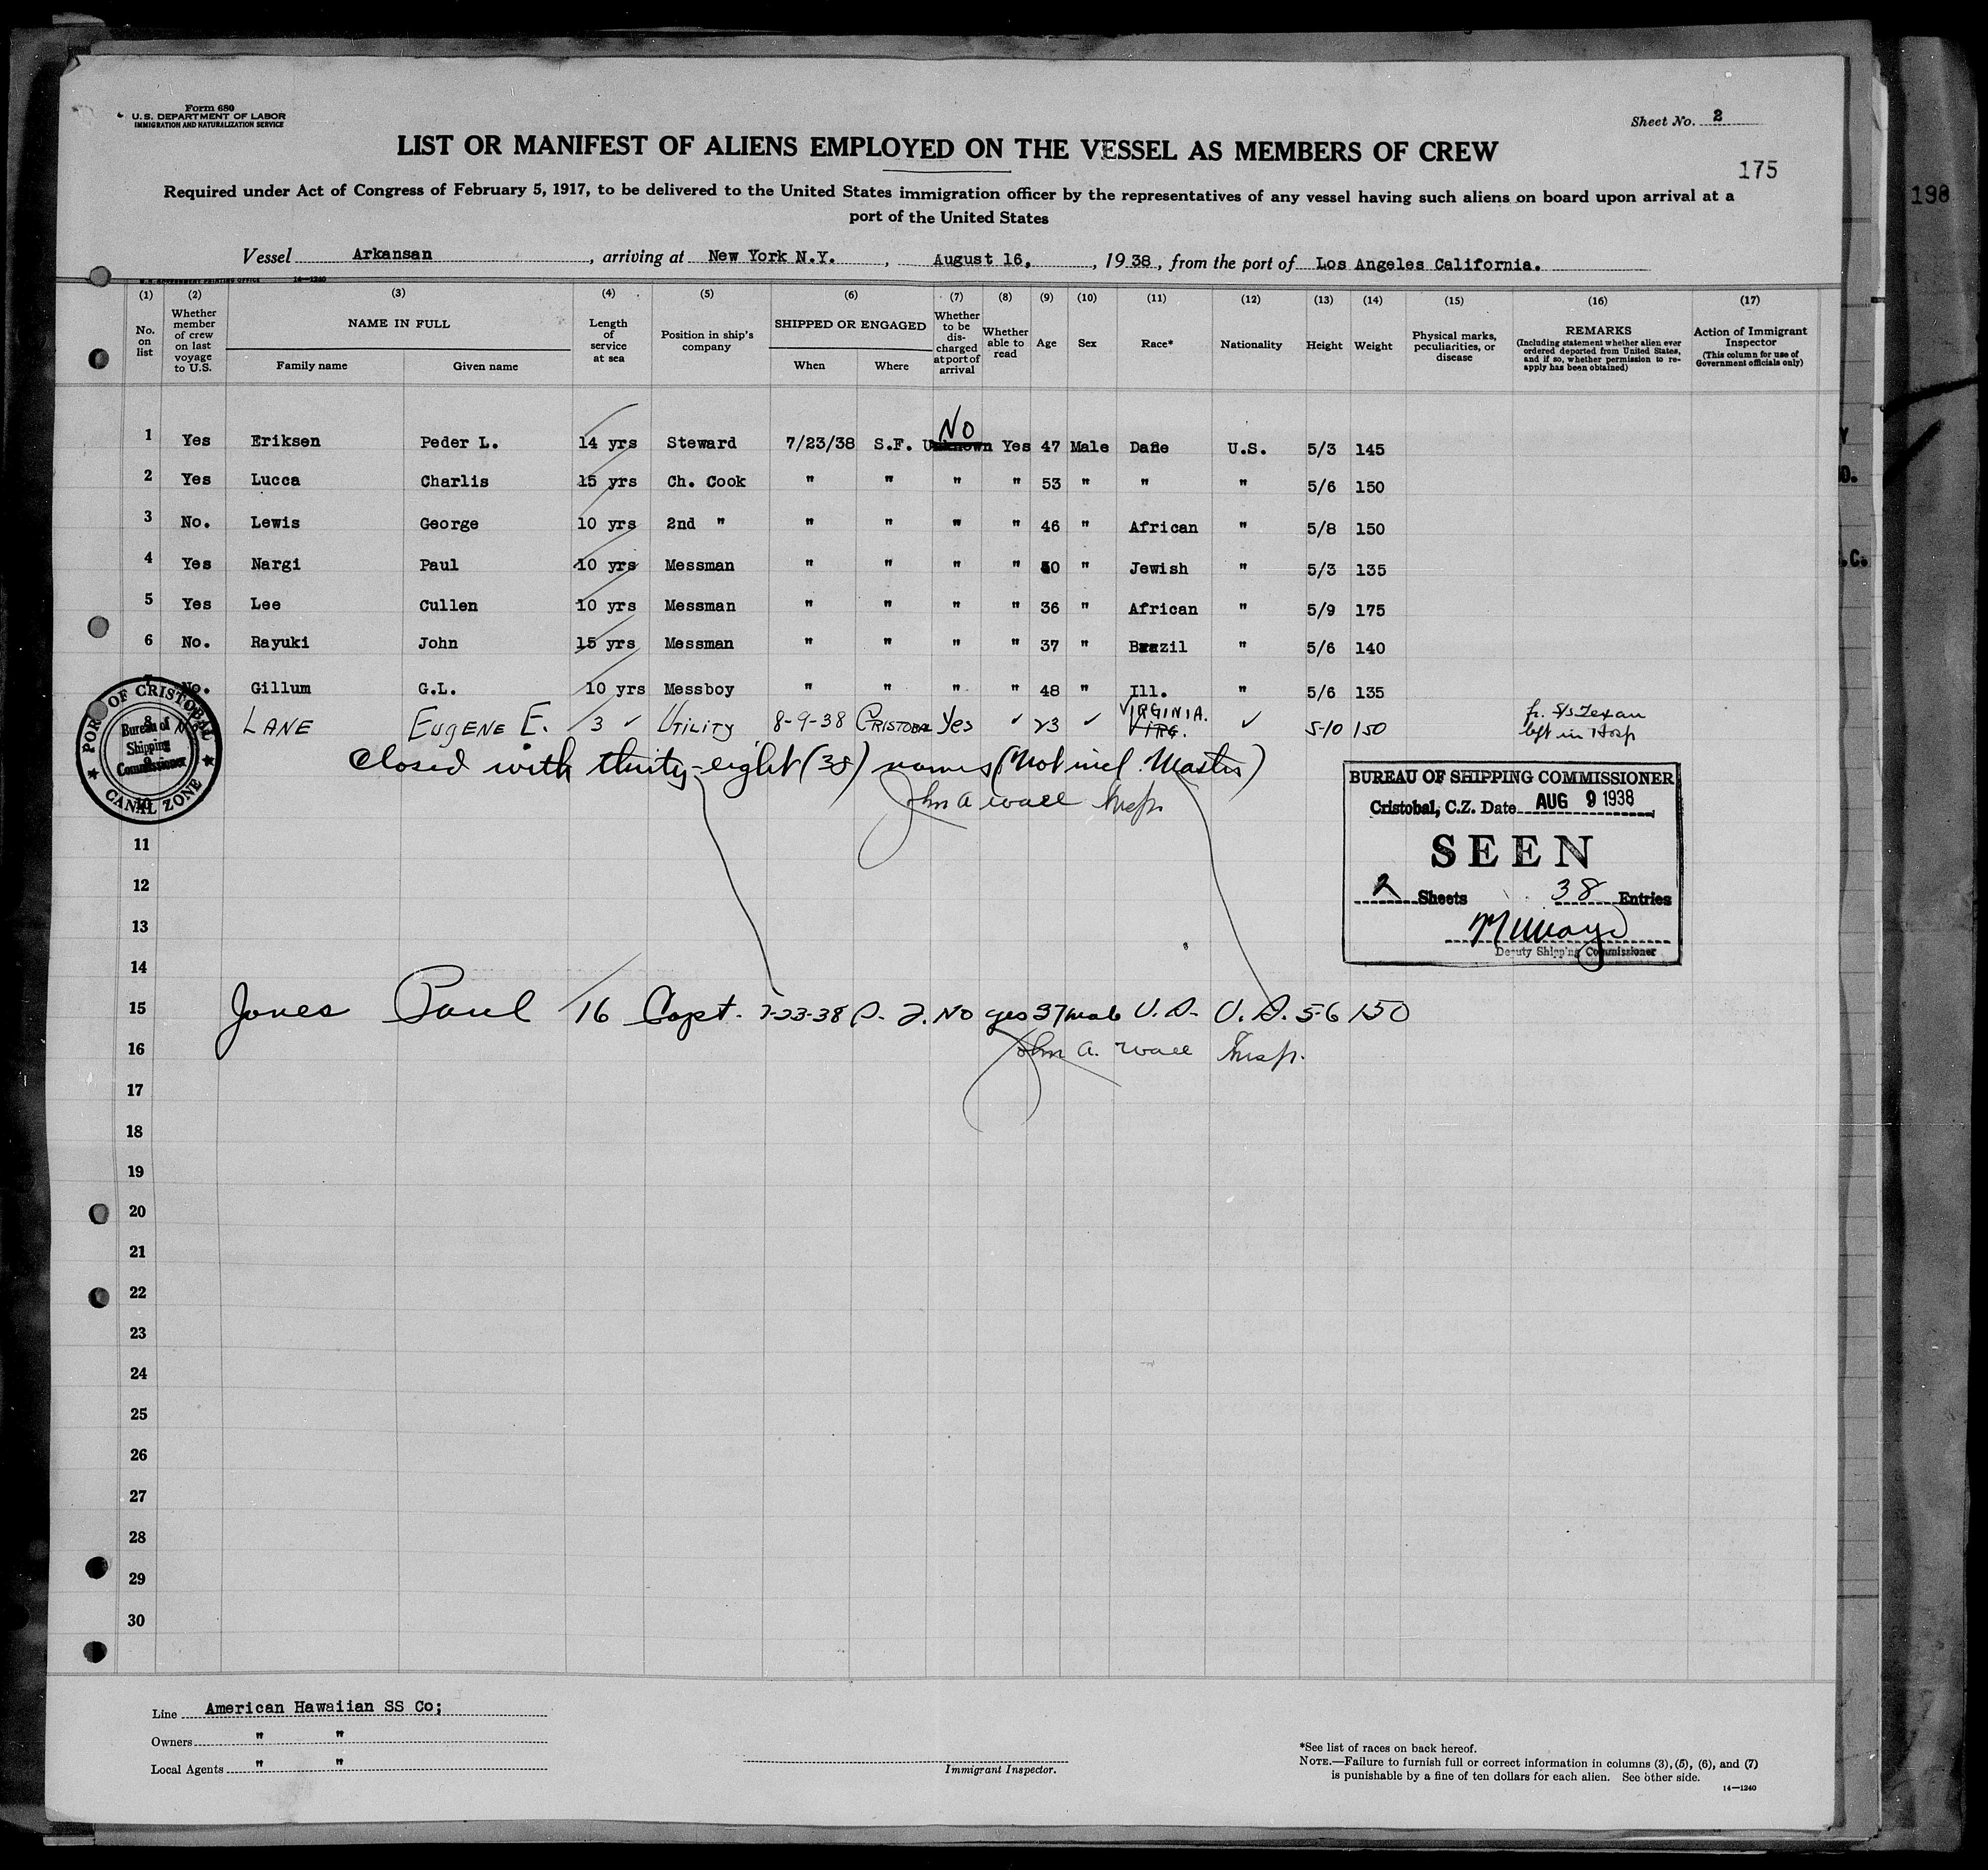 Form 680
U.S. DEPARTMENT OF LABOR
IMMIGRATION AND NATURALIZATION SERVICE
Sheet No. 2
LIST OR MANIFEST OF ALIENS EMPLOYED ON THE VESSEL AS MEMBERS OF CREW
175
198
Required under Act of Congress of February 5, 1917, to be delivered to the United States immigration officer by the representatives of any vessel having such aliens on board upon arrival at a
port of the United States
Vessel Arkansan, arriving at New York N.Y., August 16, 1938, from the port of Los Angeles California.
U.S. GOVERNMENT PRINTING OFFICE 14—1240
(1) (2) (3) (4) (5) (6) (7) (8) (9) (10) (11) (12) (13) (14) (15) (16) (17)
No. on list
Whether member of crew on last voyage to U.S.
NAME IN FULL
Family name Given name
Length of service at sea
Position in ship's company
SHIPPED OR ENGAGED
When Where
Whether to be discharged at port of arrival
Whether able to read
Age
Sex
Race*
Nationality
Height
Weight
Physical marks, peculiarities, or disease
REMARKS
(Including statement whether alien ever ordered deported from United States, and if so, whether permission to re-apply has been obtained)
Action of Immigrant Inspector
(This column for use of Government officials only)
No
1 Yes Eriksen Peder L. 14 yrs Steward 7/23/38 S.F. Unknown Yes 47 Male Dane U.S. 5/3 145
2 Yes Lucca Charlis 15 yrs Ch. Cook " " " " 53 " " " 5/6 150
3 No. Lewis George 10 yrs 2nd " " " " " 46 " African " 5/8 150
4 Yes Nargi Paul 10 yrs Messman " " " " 50 " Jewish " 5/3 135
5 Yes Lee Cullen 10 yrs Messman " " " " 36 " African " 5/9 175
6 No. Rayuki John 15 yrs Messman " " " " 37 " Brazil " 5/6 140
7 No. Gillum G.L. 10 yrs Messboy " " " " 48 " Ill. " 5/6 135
8 No LANE EUGENE E. 3 ✓ UTILITY 8-9-38 CRISTOBAL Yes ✓ 23 ✓ VIRGINIA. VIRG. ✓ 5-10 150 fr. S/s Texan
left in Hosp
PORT OF CRISTOBAL
Bureau of
Shipping
Commissioner
CANAL ZONE
9
Closed with thirty-eight (38) names (Not incl. Master)
10
John A Wall Insp.
BUREAU OF SHIPPING COMMISSIONER
Cristobal, C.Z. Date AUG 9 1938
SEEN
2 Sheets 38 Entries
Deputy Shipp'ng Commissioner
11
12
13
14
15 Jones Paul 16 Capt. 7-23-38 S. F. No yes 37 male U.S. U.S. 5-6 150
16 John A. Wall Insp.
17
18
19
20
21
22
23
24
25
26
27
28
29
30
Line American Hawaiian SS Co;
Owners " "
Local Agents " "
Immigrant Inspector.
*See list of races on back hereof.
NOTE.—Failure to furnish full or correct information in columns (3), (5), (6), and (7)
is punishable by a fine of ten dollars for each alien. See other side.
14—1240